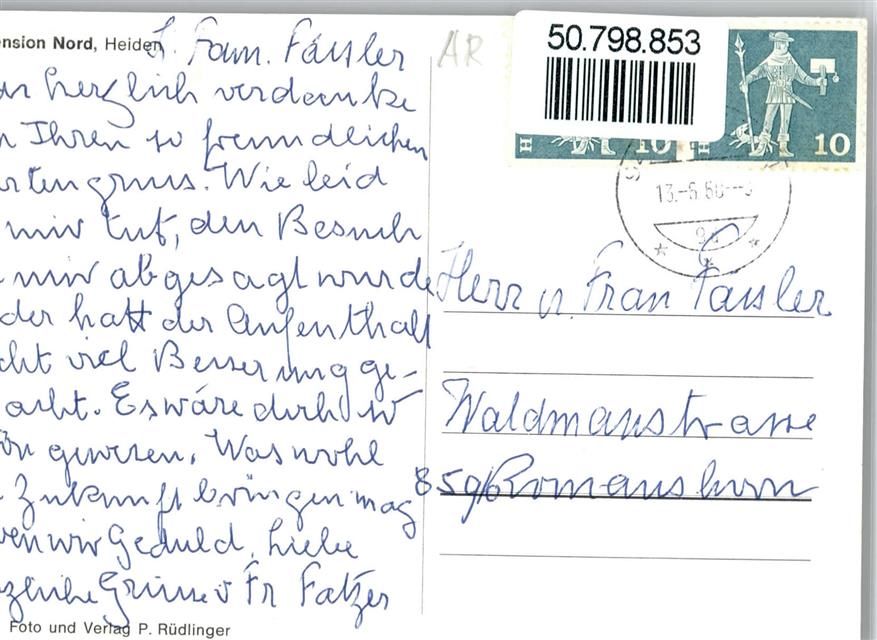 ension Nord, Heiden
L. Fam. Fässler
AR
50.798.853
10
10
herzlich verdanke
Ihren so freundlichen
rtengruss. Wie leid
mir tut, den Besuch
mir abgesagt wurde
der hatt der Aufenthalt
cht viel Besserung ge-
acht. Es wäre doch so
ön gewesen. Was wohl
Zukunft bringen mag
ben wir Geduld. Liebe
zliche Grüsse v Fr Fatzer
Foto und Verlag P. Rüdlinger
13.-5.80
Herr u. Frau Fässler
Waldmanstrasse
8590 Romanshorn